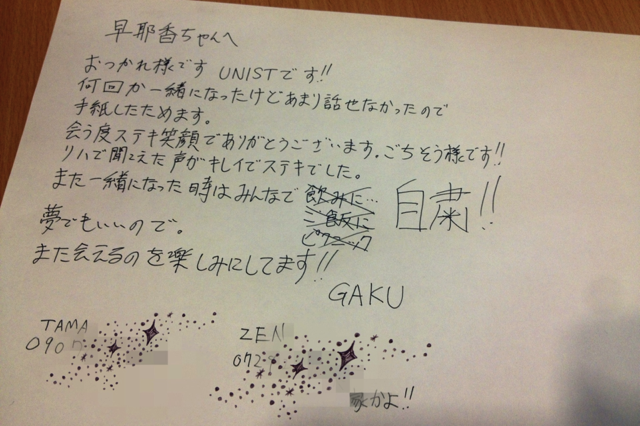 早耶香ちゃんへ
おつかれ様です UNISTです!!
何回か一緒になったけどあまり話せなかったので
手紙したためます。
会う度ステキ笑顔でありがとうございます。ごちそう様です!!
リハで聞こえた声がキレイでステキでした。
また一緒になった時はみんなで 飲みに… ご飯に ピクニック 自粛!!
夢でもいいので。
また会えるのを楽しみにしてます!!
GAKU
TAMA
090
ZEN
072
家かよ!!